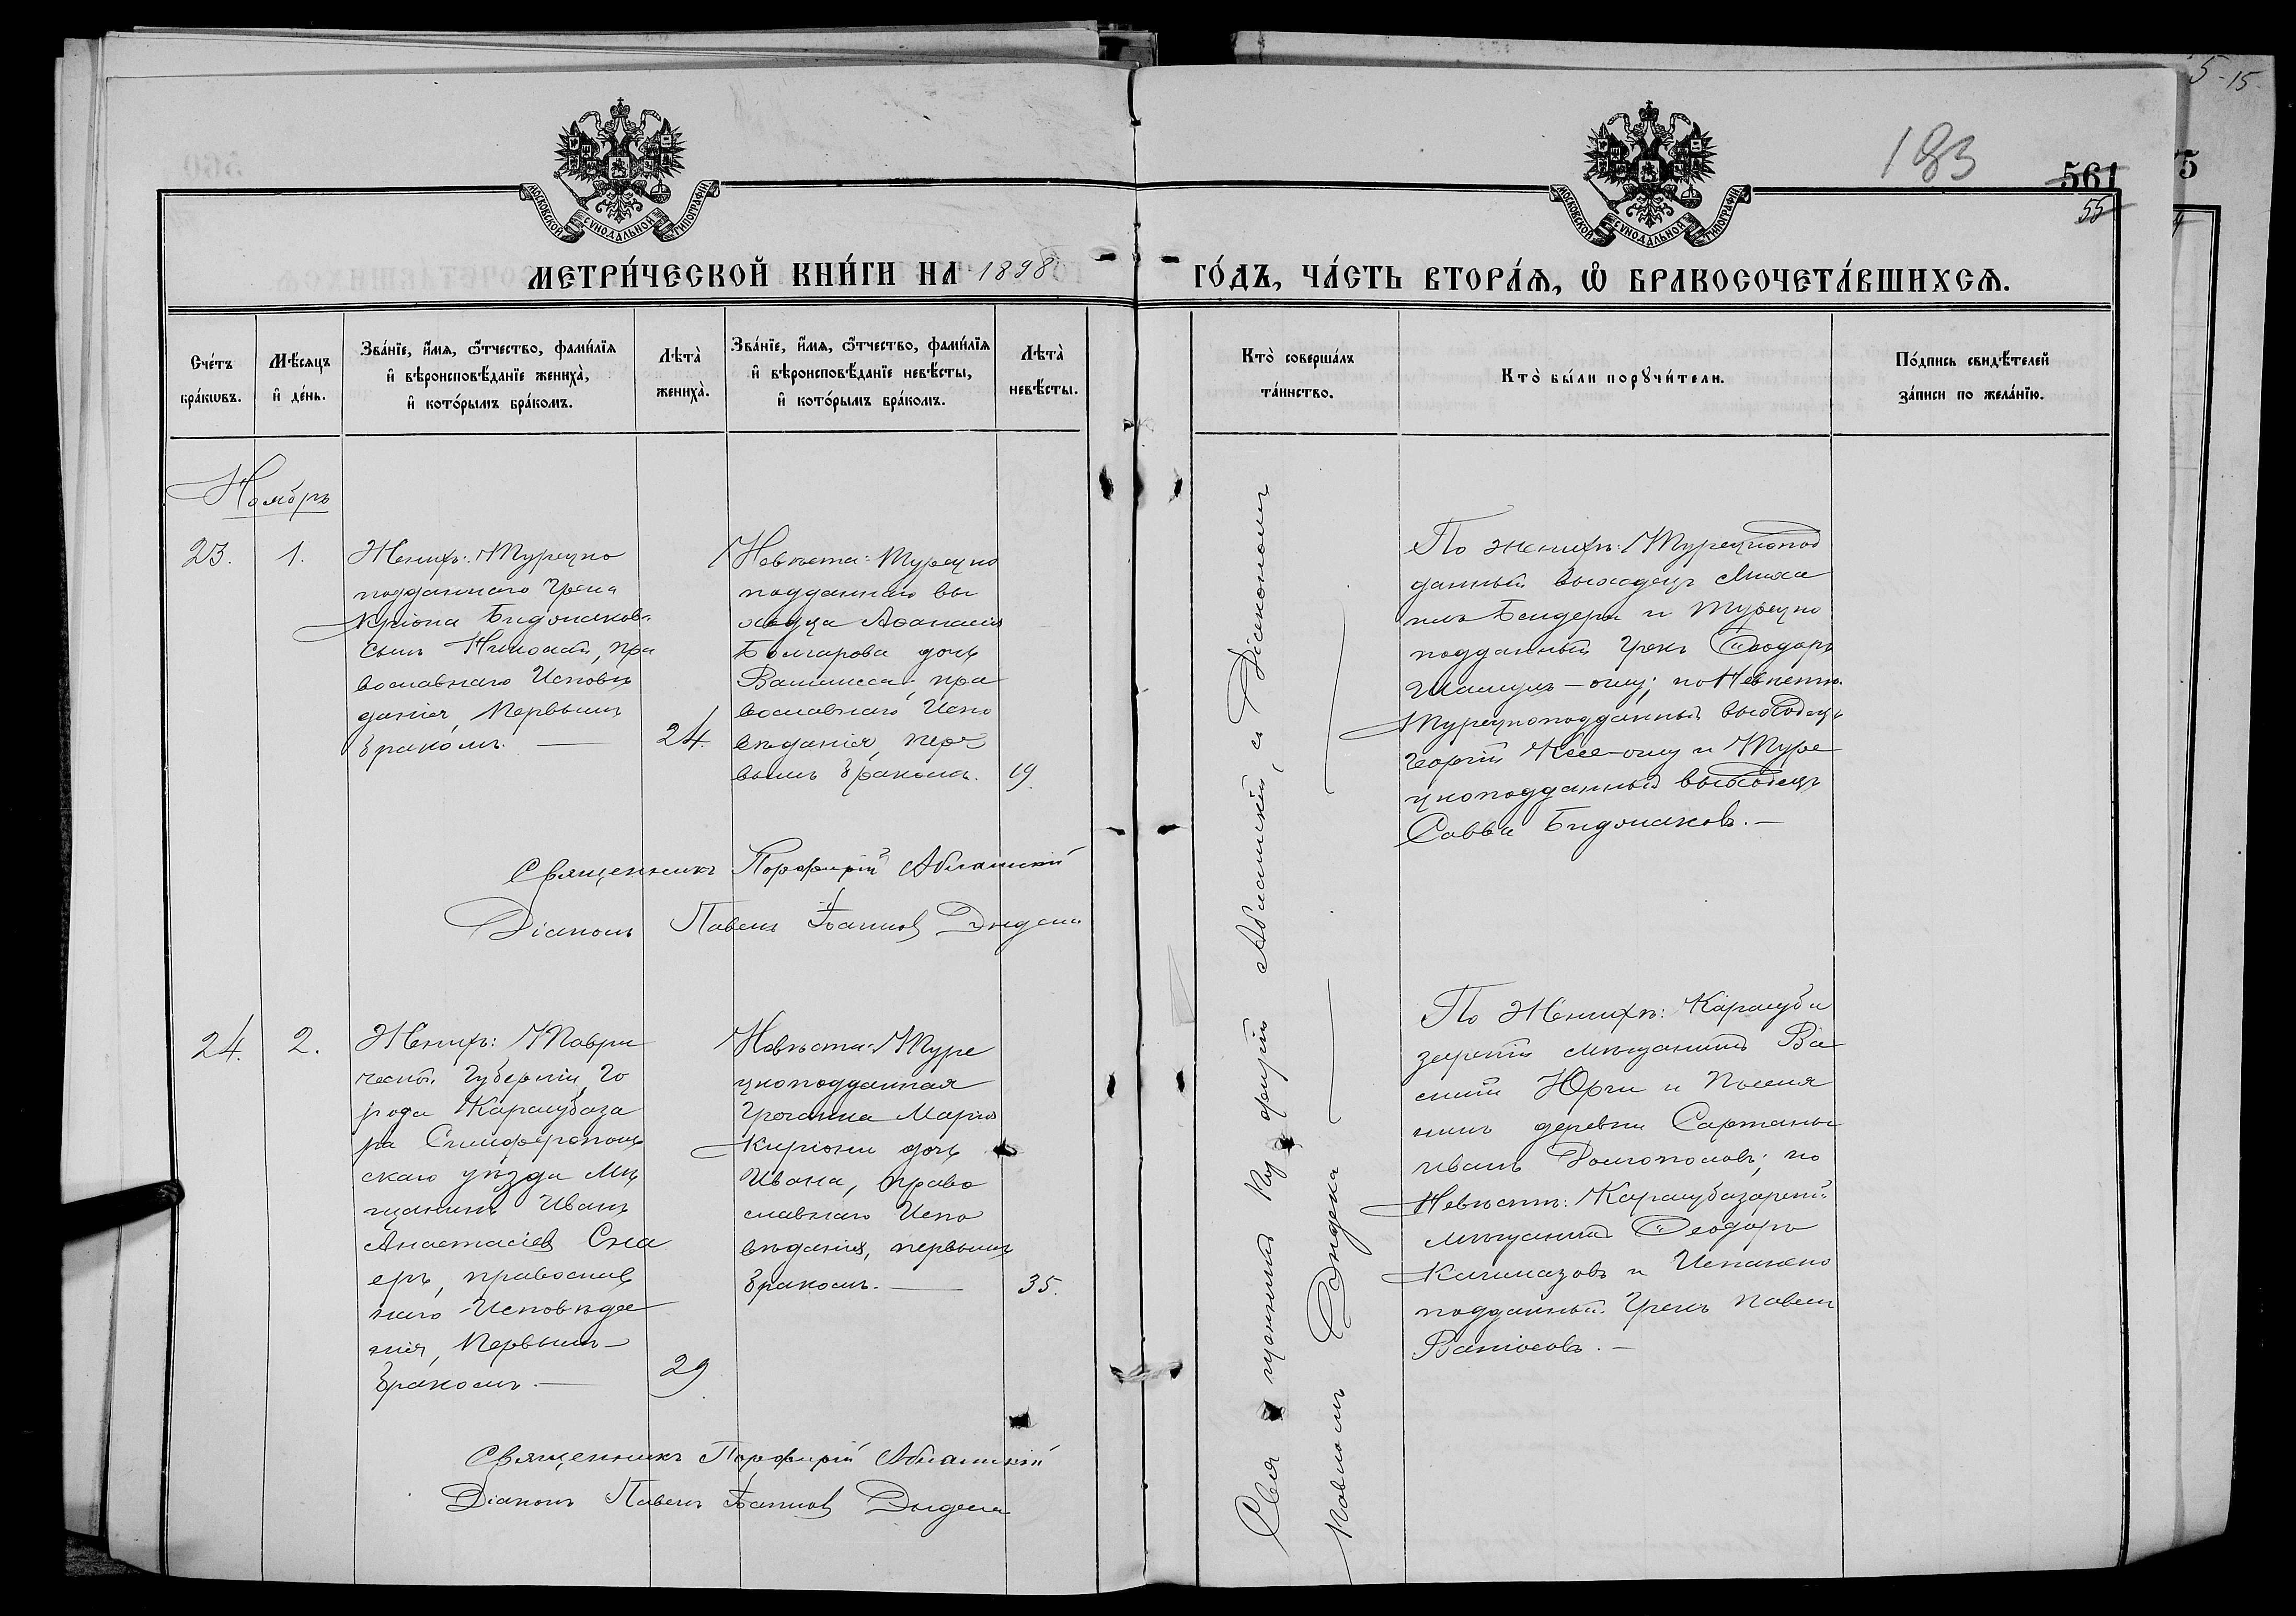 5-15
183
561
55
5
МОСКОВСКОЙ СУНОДАЛЬНОЙ ТИПОГРАФІИ
МОСКОВСКОЙ СУНОДАЛЬНОЙ ТИПОГРАФІИ
МЕТРИ́ЧЕСКОЙ КНИ́ГИ НА 1898
ГО́ДЪ, ЧА́СТЬ ВТОРА́Ѧ, Ѿ БРАКОСОЧЕТА́ВШИХСѦ.
Сче́тъ
бра́кѡвъ.
Мѣ́сяцъ
и҆ де́нь.
Зва́нїе, и҆́мѧ, ѻ҆́тчество, фами́лїѧ
и҆ вѣроисповѣ́данїе жениха̀,
и҆ кото́рымъ бра́комъ.
Лѣта̀
жениха̀.
Зва́нїе, и҆́мѧ, ѻ҆́тчество, фами́лїѧ
и҆ вѣроисповѣ́данїе невѣ́сты,
и҆ кото́рымъ бра́комъ.
Лѣта̀
невѣ́сты.
Кто̀ соверша́лъ
та́инство.
Кто̀ бы́ли порꙋчи́тели.
По́дпись свидѣ́телей
за́писи по жела́нїю.
Ноябрь
23.
1.
Женихъ: Турецко
подданнаго Грека
сынъ Николай, пра
вославнаго Исповѣ
данія, Первымъ
бракомъ. —
24.
Невѣста: Турецко
подданнаго вы
ходца Аѳанасія
Болгарова дочь
Василиса, пра
вославнаго Испо
вѣданія, пер
вымъ бракомъ.
19.
По женихѣ: Турецкопод
данный выходецъ Миха
илъ Бендери и Турецко
подданный Грекъ Ѳеодоръ
оглу; по Невѣстѣ:
Турецкоподданный выходецъ
Георгій Кесе-оглу и Туре
цкоподданный выходецъ
Савва Бидмаковъ. —
Священникъ Порфирій
Діаконъ Павелъ
24.
2.
Женихъ: Таври
ческой Губерніи, Го
рода Карасубаза
ра Симферополь
скаго уѣзда Мѣ
щанинъ Иванъ
Анастасіевъ
православ
наго Исповѣда
нія, Первымъ —
бракомъ. —
29.
Невѣста: Туре
цкоподданная
Гречанка Марія
Киріони дочь
Ивана, право
славнаго Испо
вѣданія, первымъ
бракомъ. —
35.
По Женихѣ: Карасуба
зарскій мѣщанинъ Ва
силій Юрги и Поселя
нинъ деревни Сартаны
Иванъ Долгополовъ; по
Невѣстѣ: Карасубазарскій
мѣщанинъ Ѳеодоръ
Качмазовъ и Испанско
подданный Грекъ Павелъ
Священникъ Порфирій
Діаконъ Павелъ
Священникъ съ Діакономъ
Павломъ